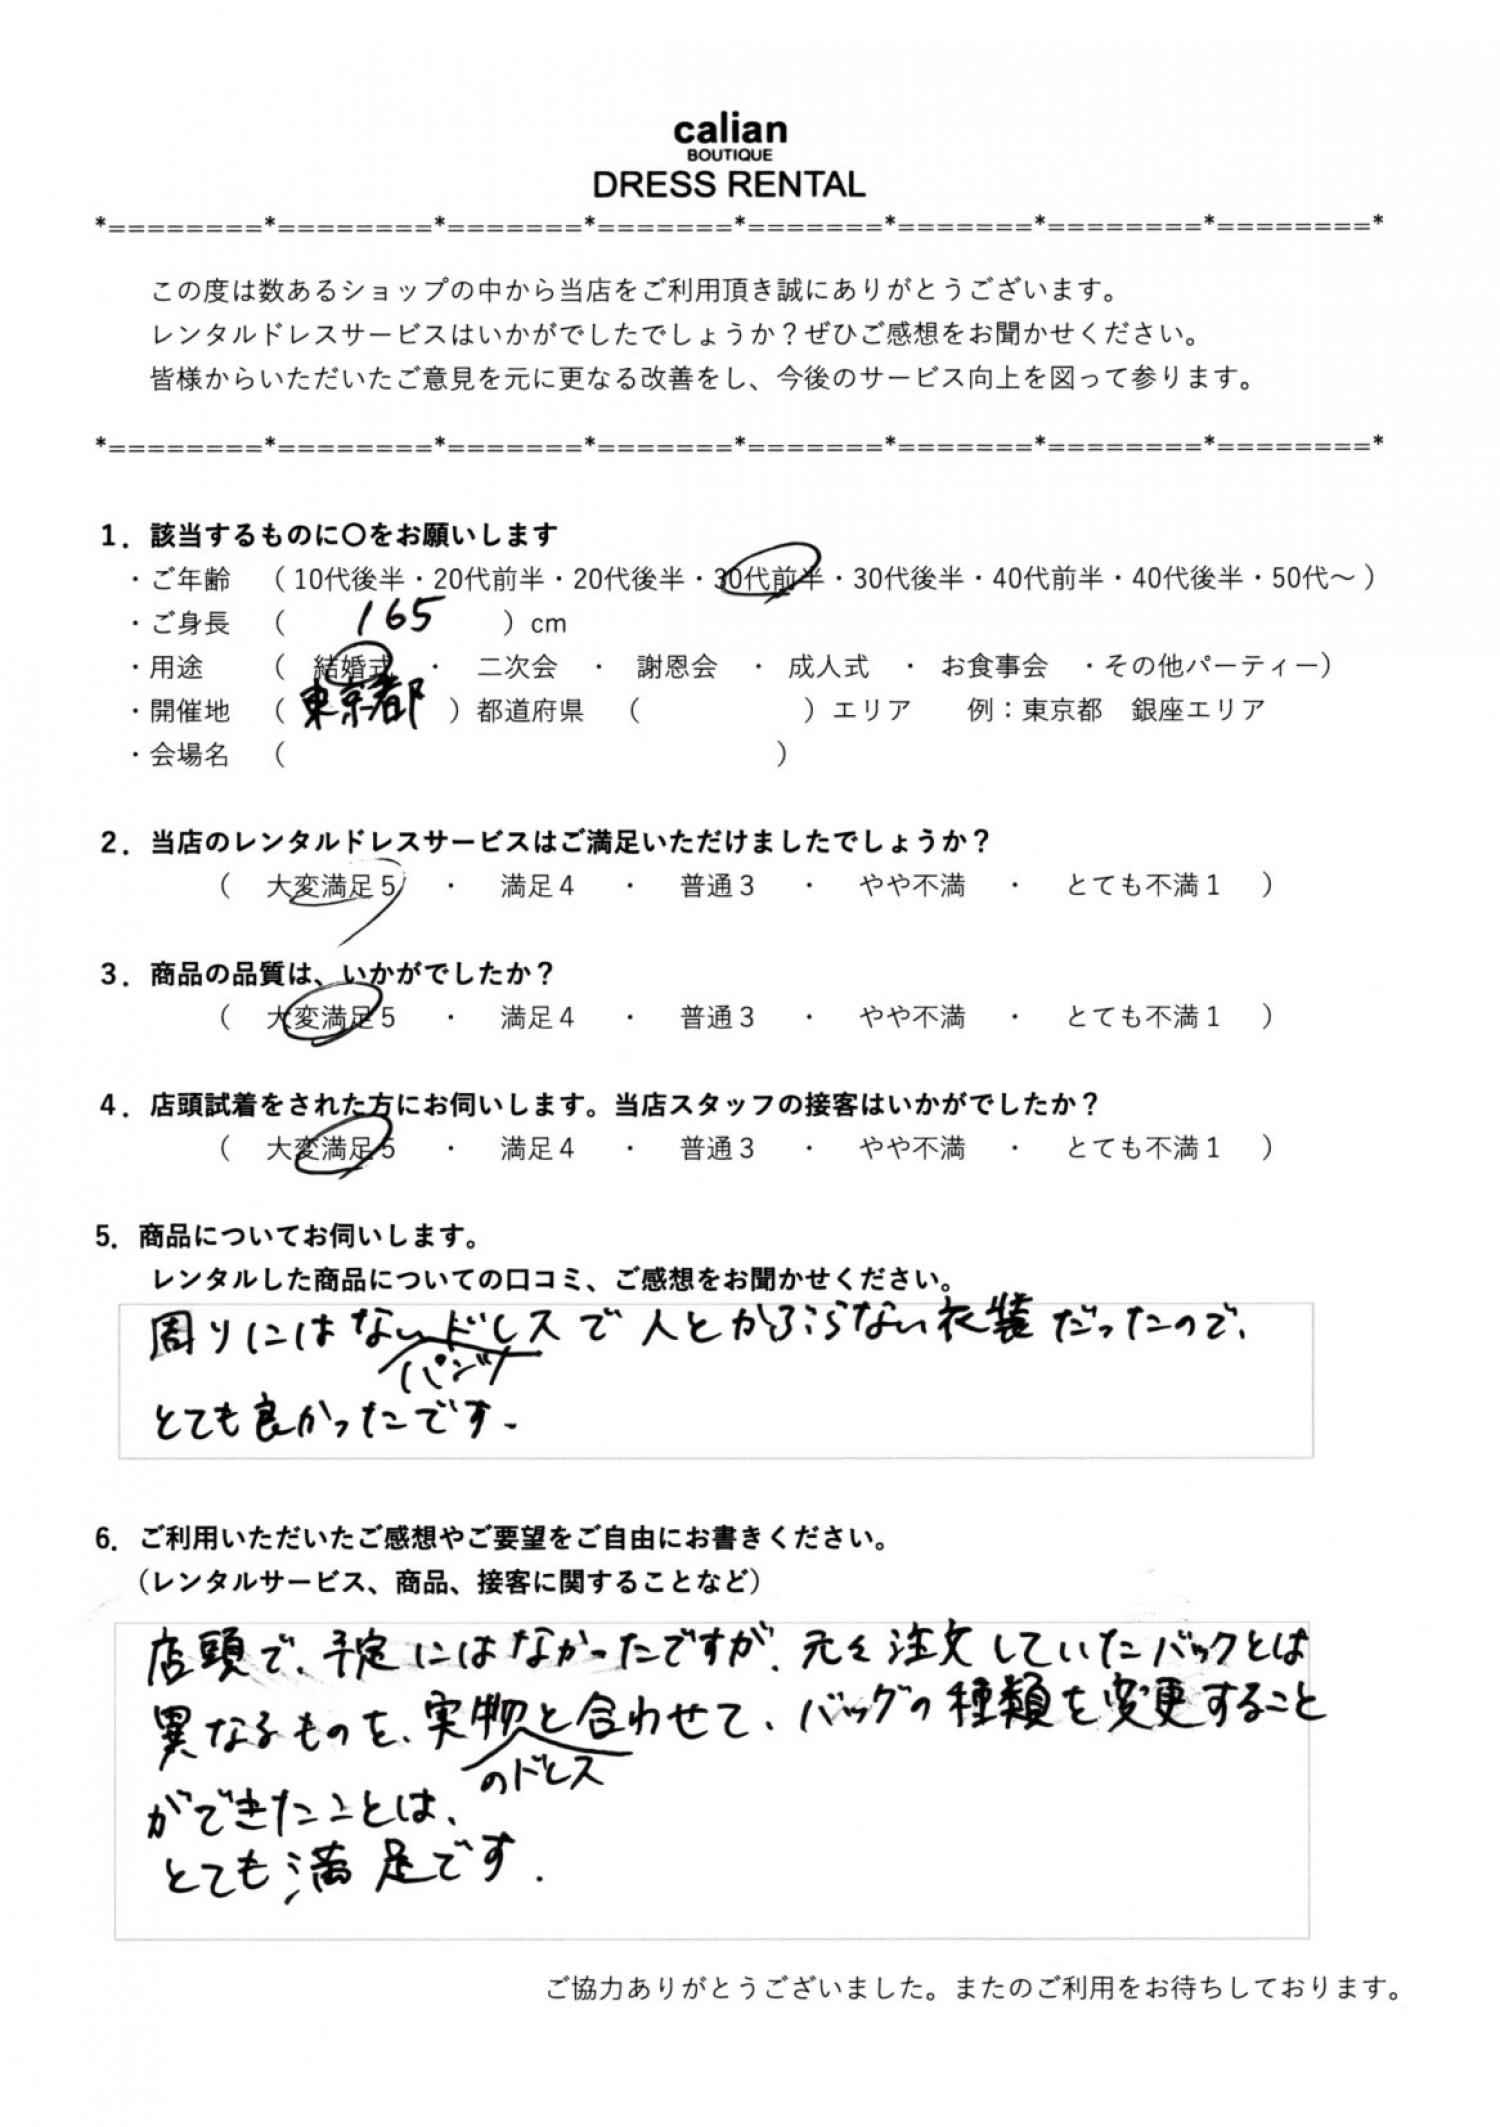 calian
BOUTIQUE
DRESS RENTAL
*========*========*=======*=======*=======*=======*========*========*
この度は数あるショップの中から当店をご利用頂き誠にありがとうございます。
レンタルドレスサービスはいかがでしたでしょうか？ぜひご感想をお聞かせください。
皆様からいただいたご意見を元に更なる改善をし、今後のサービス向上を図って参ります。
*========*========*=======*=======*=======*=======*========*========*
1．該当するものに〇をお願いします
・ご年齢 （ 10代後半・20代前半・20代後半・30代前半・30代後半・40代前半・40代後半・50代～ ）
・ご身長 （ 165 ）cm
・用途 （ 結婚式 ・ 二次会 ・ 謝恩会 ・ 成人式 ・ お食事会 ・その他パーティー）
・開催地 （ 東京都 ）都道府県 （ ）エリア 例：東京都 銀座エリア
・会場名 （ ）
2．当店のレンタルドレスサービスはご満足いただけましたでしょうか？
（ 大変満足５ ・ 満足４ ・ 普通３ ・ やや不満 ・ とても不満１ ）
3．商品の品質は、いかがでしたか？
（ 大変満足５ ・ 満足４ ・ 普通３ ・ やや不満 ・ とても不満１ ）
4．店頭試着をされた方にお伺いします。当店スタッフの接客はいかがでしたか？
（ 大変満足５ ・ 満足４ ・ 普通３ ・ やや不満 ・ とても不満１ ）
5．商品についてお伺いします。
レンタルした商品についての口コミ、ご感想をお聞かせください。
周りにはないドレスで人とかぶらない衣装だったので、
パンツ
とても良かったです。
6．ご利用いただいたご感想やご要望をご自由にお書きください。
（レンタルサービス、商品、接客に関することなど）
店頭で、予定にはなかったですが、元々注文していたバックとは
異なるものを、実物と合わせて、バッグの種類を変更すること
のドレス
ができたことは、
とても満足です.
ご協力ありがとうございました。またのご利用をお待ちしております。